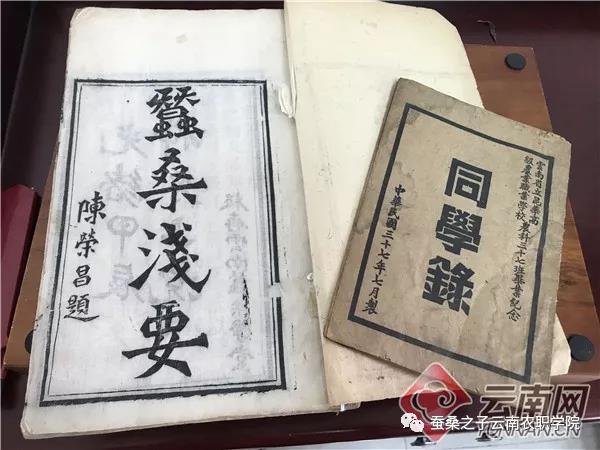 蠶桑淺要
陳榮昌題
雲南省立昆華高
級農業職業學校
農科三十七班畢業紀念
同學錄
中華民國三十七年七月製
云南网
YUNNAN.CN
蚕桑之子云南农职学院